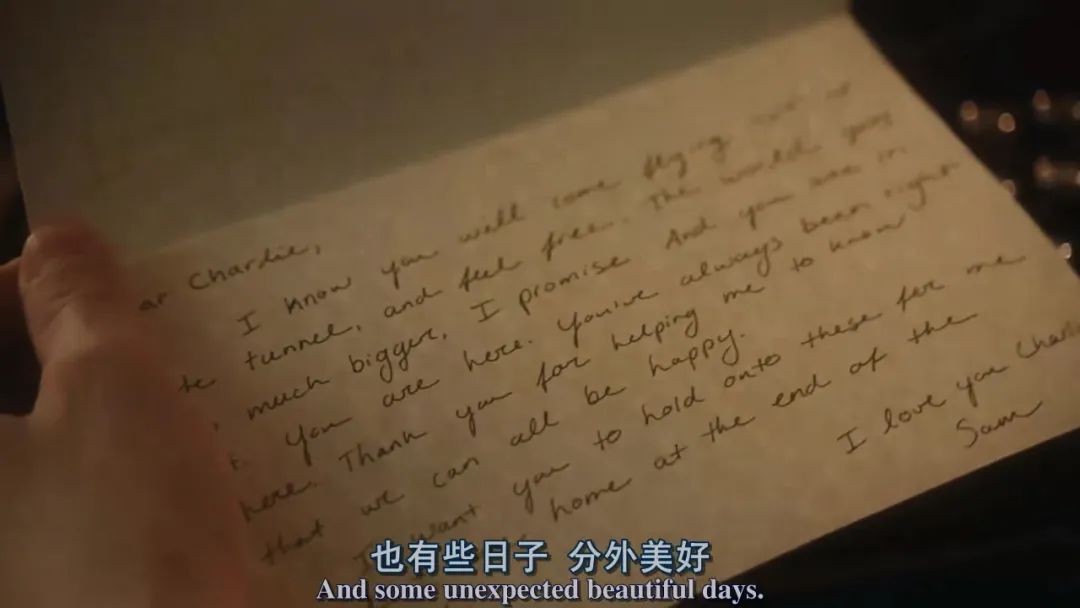 ar Charlie,
I know you will come flying
te tunnel, and feel free. The world
, much bigger, I promise. And you are in
t. You are here. You've always been right
here. Thank you for helping me to know
that we can all be happy.
I want you to hold onto these for me
home at the end of the
I love you Charlie
Sam
也有些日子 分外美好
And some unexpected beautiful days.